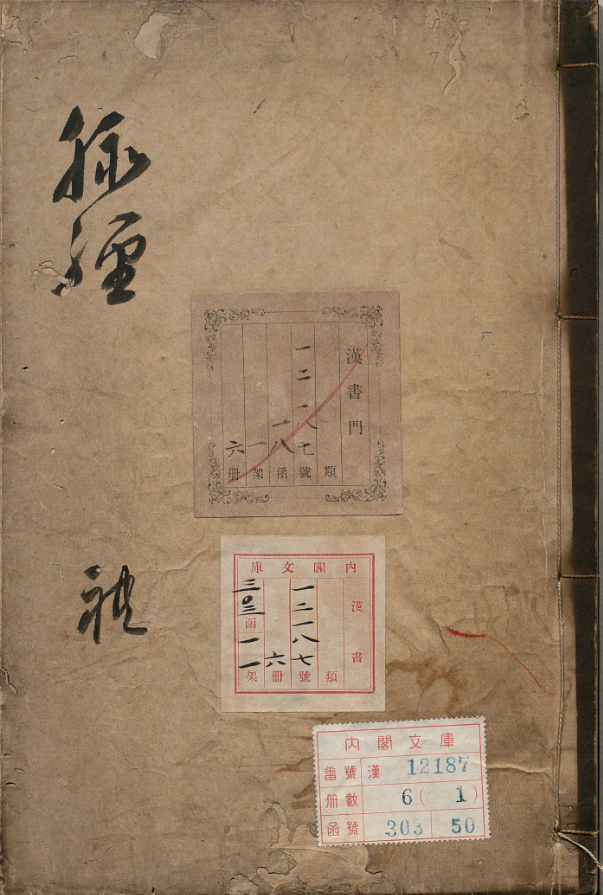 脉經
漢書門
類
一二一八七號
一八函
一架
六册
内閣文庫
漢書類
一二一八七號
六冊
三〇三函
一一架
内閣文庫
番號 漢 12187
册數 6 ( 1 )
函號 303 50